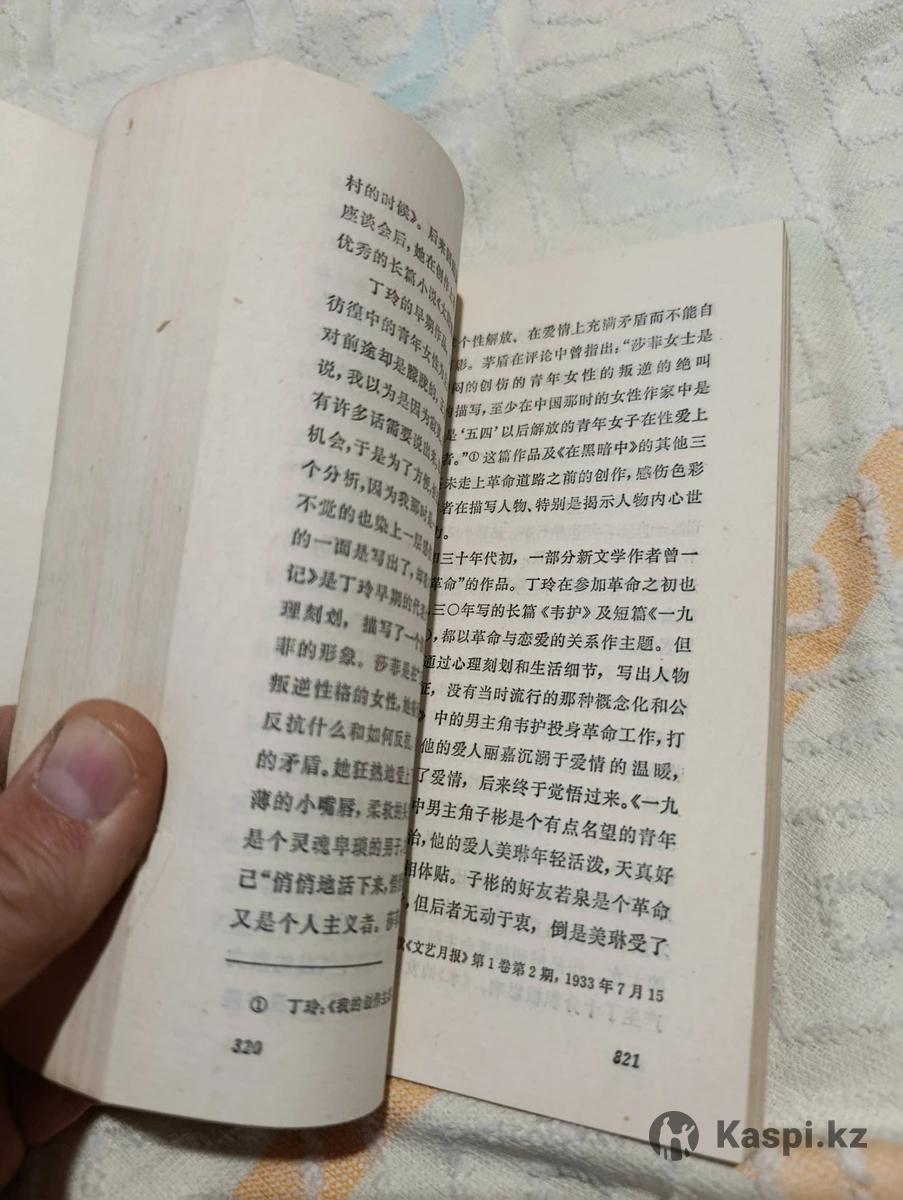 村的时候》。后来
座谈会后，她在创作上
优秀的长篇小说《太
丁玲的早期作品，
彷徨中的青年女性为主
对前途却是朦胧的，
说，我以为是因为寂寞，
有许多话需要说出来，
机会，于是为了方便，
个分析，因为我那时是
不觉的也染上一层感
的一面是写出了，却
记》是丁玲早期的代
理刻划，描写了一个
菲的形象。莎菲是
叛逆性格的女性，她
反抗什么和如何反抗，
的矛盾。她狂热地爱上
薄的小嘴唇，柔软的头
是个灵魂卑琐的男子，
己“悄悄地活下来，悄
又是个人主义者。莎
① 丁玲：《我的创作生
320
个性解放、在爱情上充满矛盾而不能自
影。茅盾在评论中曾指出：“莎菲女士是
闷的创伤的青年女性的叛逆的绝叫
的描写，至少在中国那时的女性作家中是
是‘五四’以后解放的青年女子在性爱上
者。”①这篇作品及《在黑暗中》的其他三
未走上革命道路之前的创作，感伤色彩
者在描写人物、特别是揭示人物内心世
力。
和三十年代初，一部分新文学作者曾一
革命”的作品。丁玲在参加革命之初也
三〇年写的长篇《韦护》及短篇《一九
，都以革命与恋爱的关系作主题。但
通过心理刻划和生活细节，写出人物
征，没有当时流行的那种概念化和公
》中的男主角韦护投身革命工作，打
他的爱人丽嘉沉溺于爱情的温暖，
了爱情，后来终于觉悟过来。《一九
中男主角子彬是个有点名望的青年
治，他的爱人美琳年轻活泼，天真好
相体贴。子彬的好友若泉是个革命
，但后者无动于衷，倒是美琳受了
《文艺月报》第1卷第2期，1933年7月15
321
Kaspi.kz